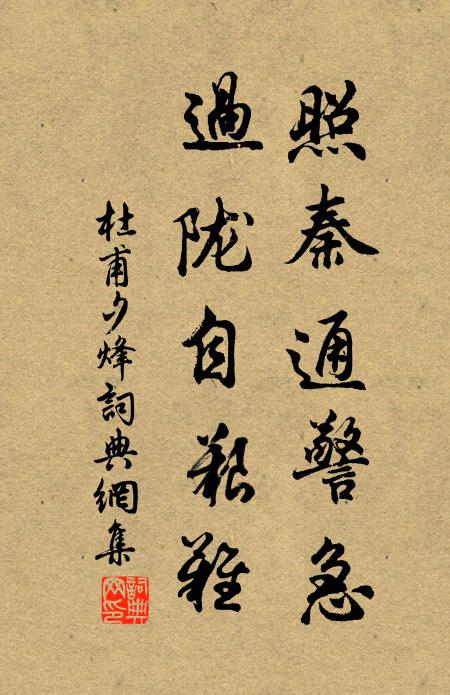 照秦通警急
過陇自艱難
杜甫夕烽詞典網集
詞典
网印